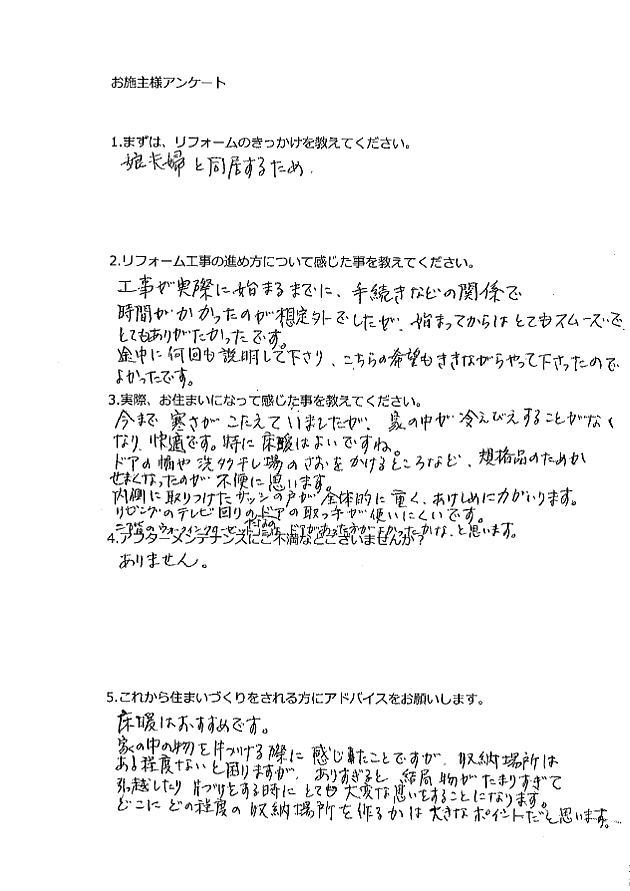 お施主様アンケート
1.まずは、リフォームのきっかけを教えてください。
娘夫婦と同居するため.
2.リフォーム工事の進め方について感じた事を教えてください。
工事が実際に始まるまでに、手続きなどの関係で
時間がかかったのが想定外でしたが、始まってからはとてもスムーズで
とてもありがたかったです。
途中に何回も説明して下さり、こちらの希望もききながらやって下さったので
よかったです。
3.実際、お住まいになって感じた事を教えてください。
今まで寒さがこたえていましたが、家の中が冷えびえすることがなく
なり、快適です。特に床暖はよいですね。
ドアの幅や洗タク干し場のさおをかけるところなど、規格品のためか
せまくなったのが不便に思います。
内側に取りつけたサッシの戸が全体的に重く、あけしめに力がいります。
リビングのテレビ回りのドアの取っ手が使いにくいです。
二階のウォークインクローゼットにはドアがあった方がよかったかな、と思います。
4.アフターメンテナンスにご不満などございませんか？
ありません。
5.これから住まいづくりをされる方にアドバイスをお願いします。
床暖はおすすめです。
家の中の物を片づける際に感じたことですが、収納場所は
ある程度ないと困りますが、ありすぎると結局物がたまりすぎて
引越したり片づけをする時にとても大変な思いをすることになります。
どこにどの程度の収納場所を作るかは大きなポイントだと思います。